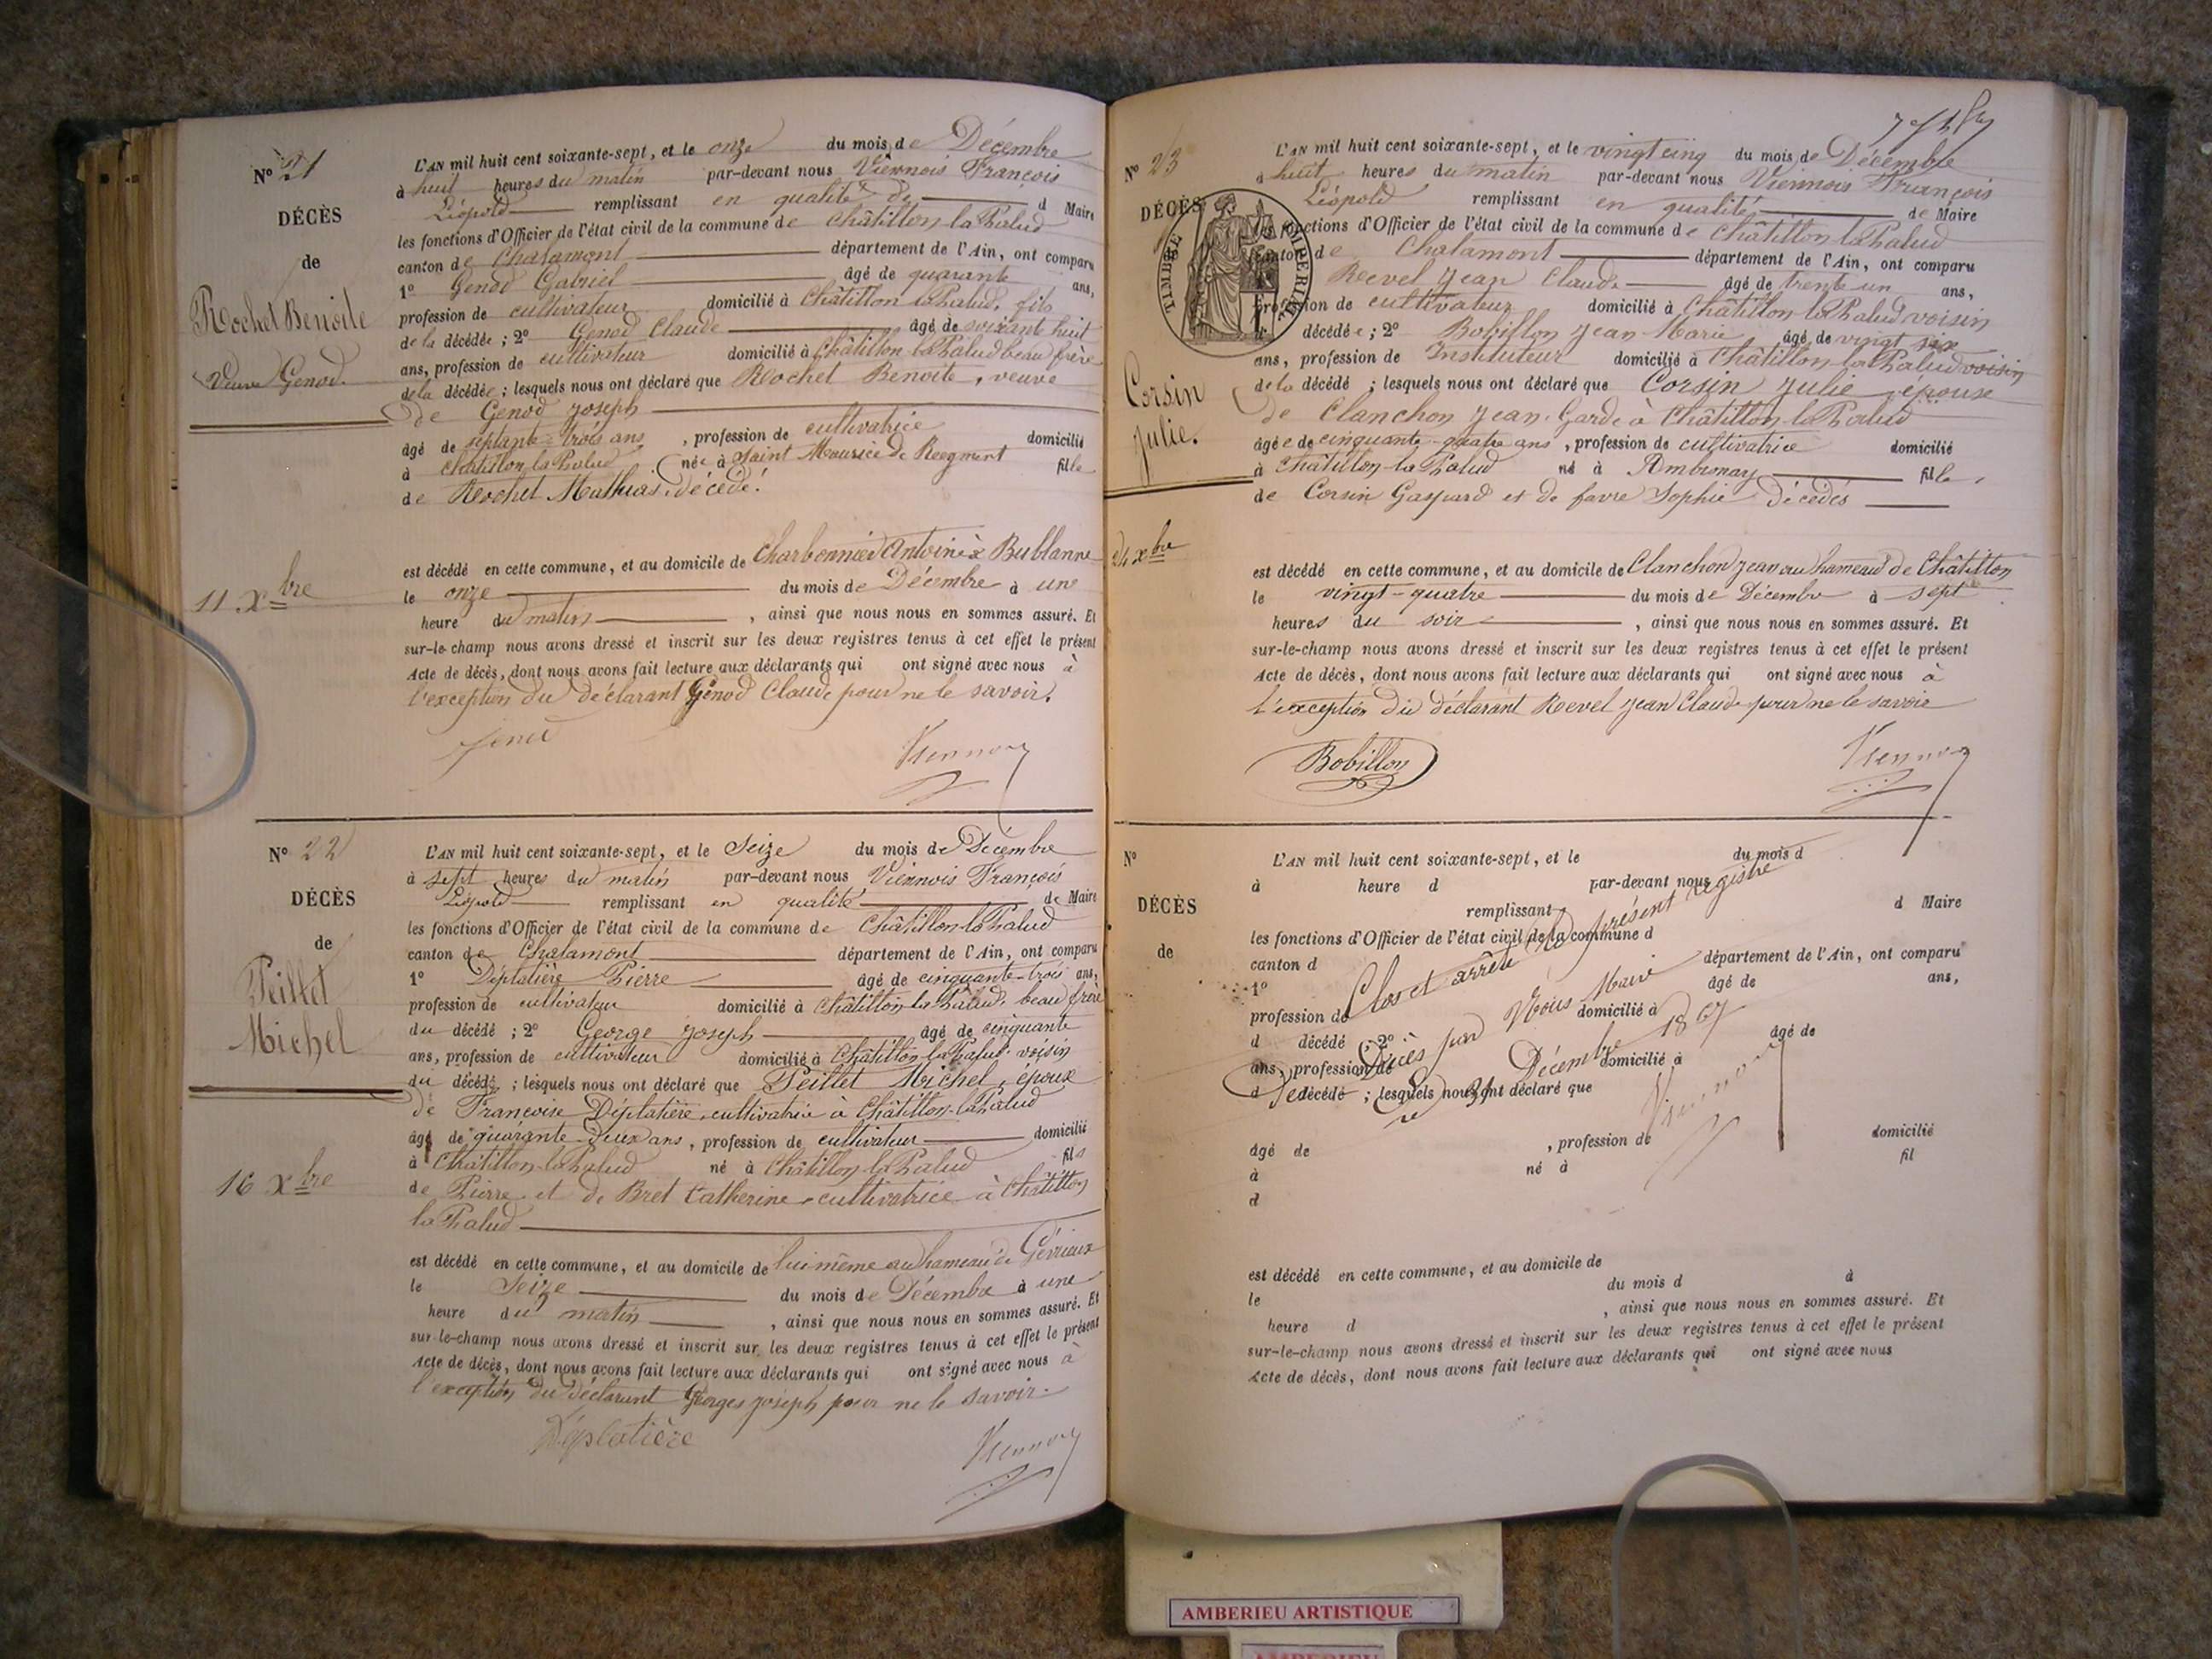 N° 21
DÉCÈS
de
Rochet Benoite
Veuve Genod.
11 Xbre
L'AN mil huit cent soixante-sept, et le onze du mois de Décembre
à huit heures du matin par-devant nous Viennois François
Léopold remplissant en qualité de d Maire
les fonctions d'Officier de l'état civil de la commune de Châtillon la Palud
canton de Chalamont département de l'Ain, ont comparu
1° Genod Gabriel âgé de quarante ans,
profession de cultivateur domicilié à Châtillon la Palud, fils
de la décédée ; 2° Genod Claude âgé de soixante huit
ans, profession de cultivateur domicilié à Châtillon la Palud beau frère
de la décédée ; lesquels nous ont déclaré que Rochet Benoite, veuve
de Genod Joseph
âgé de septante-trois ans, profession de cultivatrice domicilié
à Châtillon la Palud née à Saint Maurice de fille
de Rochet Mathias décédé.
est décédé en cette commune, et au domicile de Charbonnier Antoine à Bublanne
le onze du mois de Décembre à une
heure du matin, ainsi que nous nous en sommes assuré. Et
sur-le-champ nous avons dressé et inscrit sur les deux registres tenus à cet effet le présent
Acte de décès, dont nous avons fait lecture aux déclarants qui ont signé avec nous à
l'exception du déclarant Genod Claude pour ne le savoir.
Genod Viennois
N° 22
DÉCÈS
de
Peillet
Michel
16 Xbre
L'AN mil huit cent soixante-sept, et le Seize du mois de Décembre
à sept heures du matin par-devant nous Viennois François
Léopold remplissant en qualité de Maire
les fonctions d'Officier de l'état civil de la commune de Châtillon la Palud
canton de Chalamont département de l'Ain, ont comparu
1° Déplatière Pierre âgé de cinquante-trois ans,
profession de cultivateur domicilié à Châtillon la Palud, beau frère
du décédé ; 2° George Joseph âgé de cinquante
ans, profession de cultivateur domicilié à Châtillon la Palud voisin
du décédé ; lesquels nous ont déclaré que Peillet Michel, époux
de Françoise Déplatière, cultivatrice à Châtillon-la-Palud
âgé de quarante-deux ans, profession de cultivateur domicilié
à Châtillon-la-Palud né à Châtillon la Palud fils
de Pierre et de Bret Catherine, cultivatrice à Châtillon
la Palud
est décédé en cette commune, et au domicile de lui même au hameau de Gévrieux
le Seize du mois de Décembre à une
heure du matin, ainsi que nous nous en sommes assuré. Et
sur-le-champ nous avons dressé et inscrit sur les deux registres tenus à cet effet le présent
Acte de décès, dont nous avons fait lecture aux déclarants qui ont signé avec nous à
l'exception du déclarant Georges Joseph pour ne le savoir.
Déplatière Viennois
N° 23
DÉCÈS
TIMBRE IMPERIAL
Corsin
Julie.
24 Xbre
L'AN mil huit cent soixante-sept, et le vingt cinq du mois de Décembre
à huit heures du matin par-devant nous Viennois François
Léopold remplissant en qualité de Maire
les fonctions d'Officier de l'état civil de la commune de Châtillon la Palud
canton de Chalamont département de l'Ain, ont comparu
Revel Jean Claude âgé de trente un ans,
profession de cultivateur domicilié à Châtillon la Palud voisin
décédée ; 2° Bobillon Jean Marie âgé de vingt six
ans, profession de Instituteur domicilié à Châtillon-la-Palud voisin
de la décédé ; lesquels nous ont déclaré que Corsin Julie épouse
de Clanchon Jean, Garde à Châtillon-la-Palud
âgée de cinquante-quatre ans, profession de cultivatrice domicilié
à Châtillon-la-Palud né à Ambronay fille
de Corsin Gaspard et de favre Sophie décédés
est décédé en cette commune, et au domicile de Clanchon Jean au hameau de Châtillon
le vingt-quatre du mois de Décembre à sept
heures du soir, ainsi que nous nous en sommes assuré. Et
sur-le-champ nous avons dressé et inscrit sur les deux registres tenus à cet effet le présent
Acte de décès, dont nous avons fait lecture aux déclarants qui ont signé avec nous à
l'exception du déclarant Revel Jean Claude pour ne le savoir
Bobillon Viennois
N°
DÉCÈS
de
L'AN mil huit cent soixante-sept, et le du mois d
à heure d par-devant nous
remplissant d Maire
les fonctions d'Officier de l'état civil de la commune d
canton d département de l'Ain, ont comparu
1° âgé de ans,
profession de domicilié à
d décédé ; 2° âgé de
ans, profession de domicilié à
d décédé ; lesquels nous ont déclaré que
âgé de, profession de domicilié
à né à fil
d
Clos et arrêté le présent registre
de Décès par Nous Maire
ce 31 Décembre 1867
Viennois
est décédé en cette commune, et au domicile de
le du mois d à
heure d, ainsi que nous nous en sommes assuré. Et
sur-le-champ nous avons dressé et inscrit sur les deux registres tenus à cet effet le présent
Acte de décès, dont nous avons fait lecture aux déclarants qui ont signé avec nous
AMBERIEU ARTISTIQUE
AMBERIEU